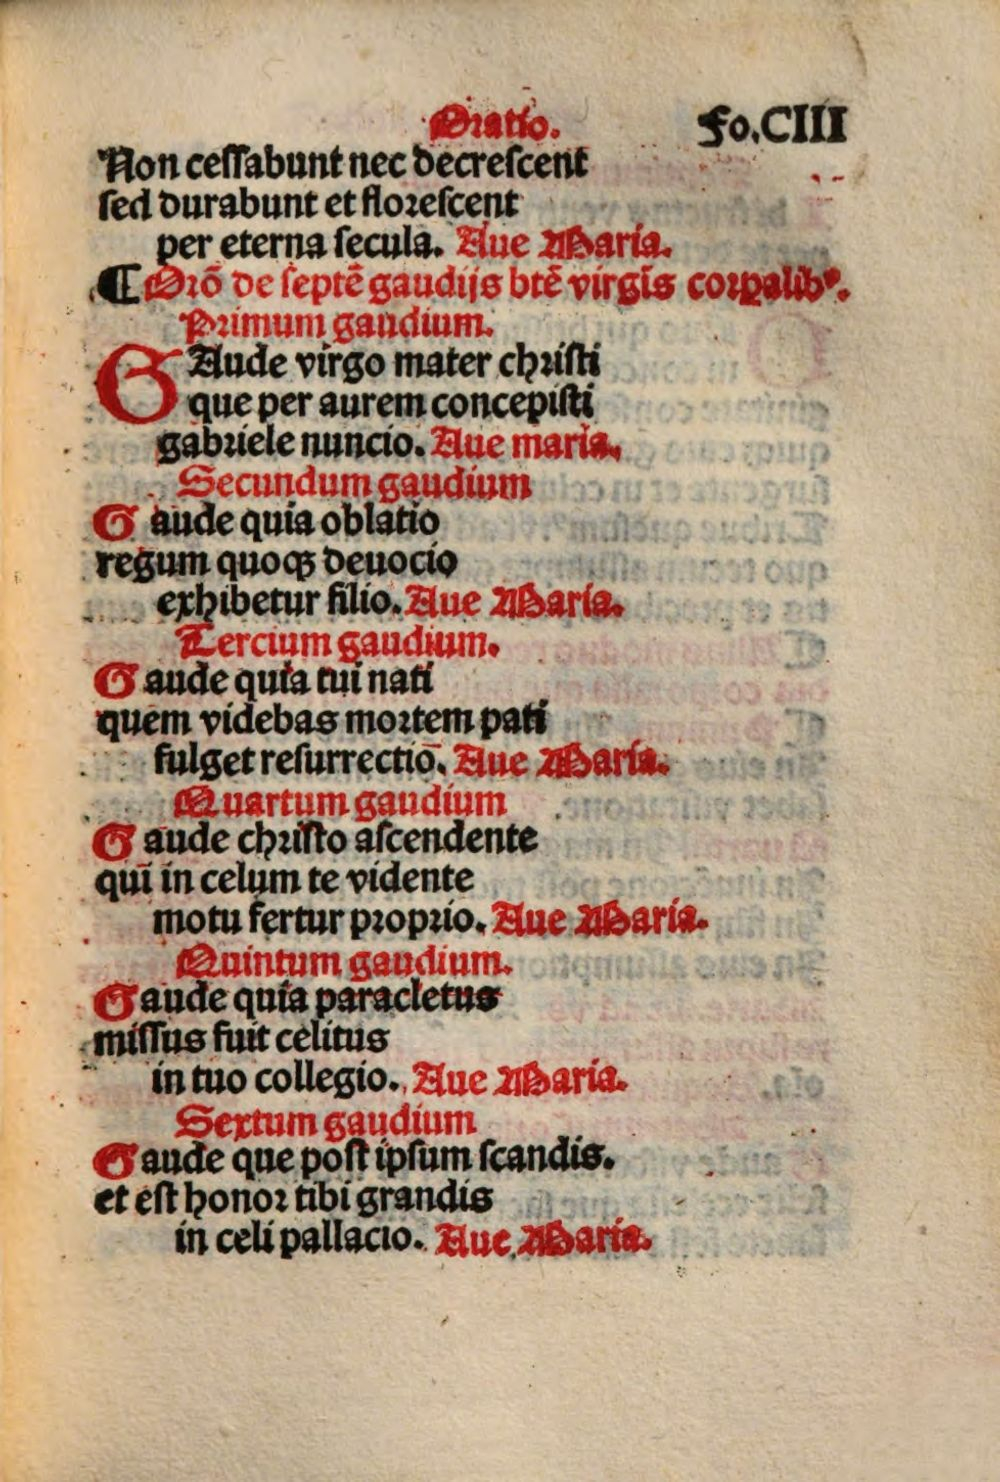 Oratio. Fo.CIII
Non ceſſabunt nec decreſcent
ſed durabunt et floreſcent
per eterna ſecula. Aue Maria.
¶ Orō de ſeptē gaudijs btē virgīs corꝑalibꝰ.
Primum gaudium.
GAude virgo mater chriſti
que per aurem concepiſti
gabriele nuncio. Aue maria.
Secundum gaudium
Gaude quia oblatio
regum quoqꝫ deuocio
exhibetur filio. Aue Maria.
Tercium gaudium.
Gaude quia tui nati
quem videbas mortem pati
fulget reſurrectiō. Aue Maria.
Quartum gaudium
Gaude chriſto aſcendente
qui in celum te vidente
motu fertur proprio. Aue Maria.
Quintum gaudium.
Gaude quia paracletus
miſſus fuit celitus
in tuo collegio. Aue Maria.
Sextum gaudium
Gaude que poſt ipſum ſcandis.
et eſt honor tibi grandis
in celi pallacio. Aue Maria.